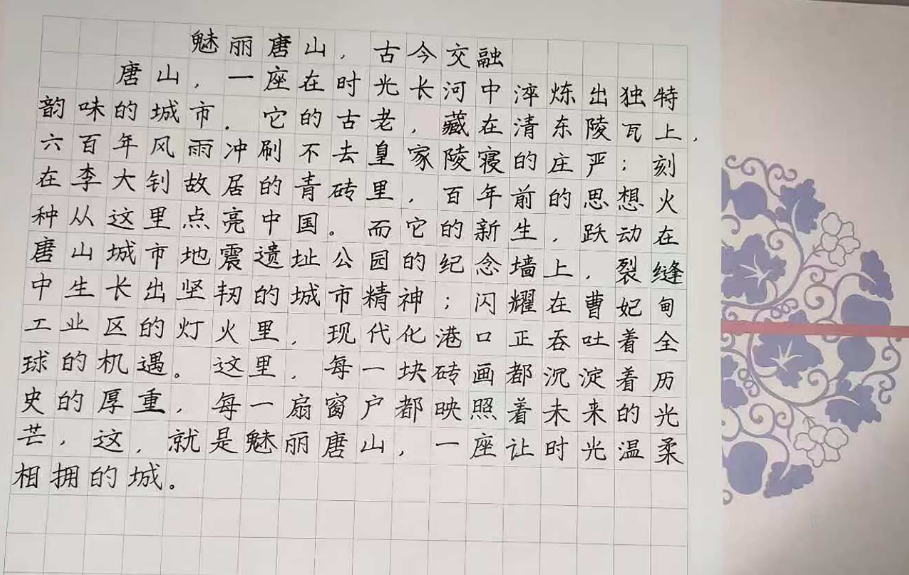 魅丽唐山，古今交融
唐山，一座在时光长河中淬炼出独特
韵味的城市．它的古老，藏在清东陵瓦上，
六百年风雨冲刷不去皇家陵寝的庄严；刻
在李大钊故居的青砖里，百年前的思想火
种从这里点亮中国。而它的新生，跃动在
唐山城市地震遗址公园的纪念墙上，裂缝
中生长出坚韧的城市精神；闪耀在曹妃甸
工业区的灯火里，现代化港口正吞吐着全
球的机遇。这里，每一块砖画都沉淀着历
史的厚重，每一扇窗户都映照着未来的光
芒，这，就是魅丽唐山，一座让时光温柔
相拥的城。